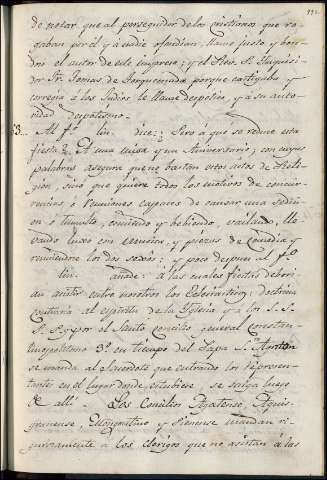 de notar, que al perseguidor de los cristianos que ro-
gaban por él y a nadie ofendian, llame justo y bon-
dro el autor de este impreso; y al Rmo. S. Inquisi-
Sr. Tomas de Torquemada porque castigaba y
correjia á los Judios le llame despota, y á su auto-
ridad despotismo.
53. Al fº. dice: ¿Pero á que se reduce esta
fiesta? A una misa y un Aniversario; con cuyas
palabras asegura que no bastan estos actos de Reli-
gion, sino que quiere todos los motivos de concur-
rencias, ó reuniones capaces de causar una sedici-
on ó tumulto, comiendo y bebiendo, vailando, lle-
vando luxo en y piezas de Comedia y
reuniendose los dos sexos: y poco despues al fº.
añade: á las cuales fiestas deberi-
an asistir entre nosotros los Eclesiasticos; doctrina
contraria al espiritu de la Iglesia y a los S.S.
P.P. y por el Santo Concilio general Constan-
tinopolitano 3º. en tiempo del Papa Sn. Agaton
se manda al Sacerdote que entrando los represen-
tante en el lugar donde estubiere se salga luego
de allí. Los Concilios Agatense, Aquis-
granense, Moguntino y Senense mandan ri-
gurosamente á los clerigos que no asistan á las